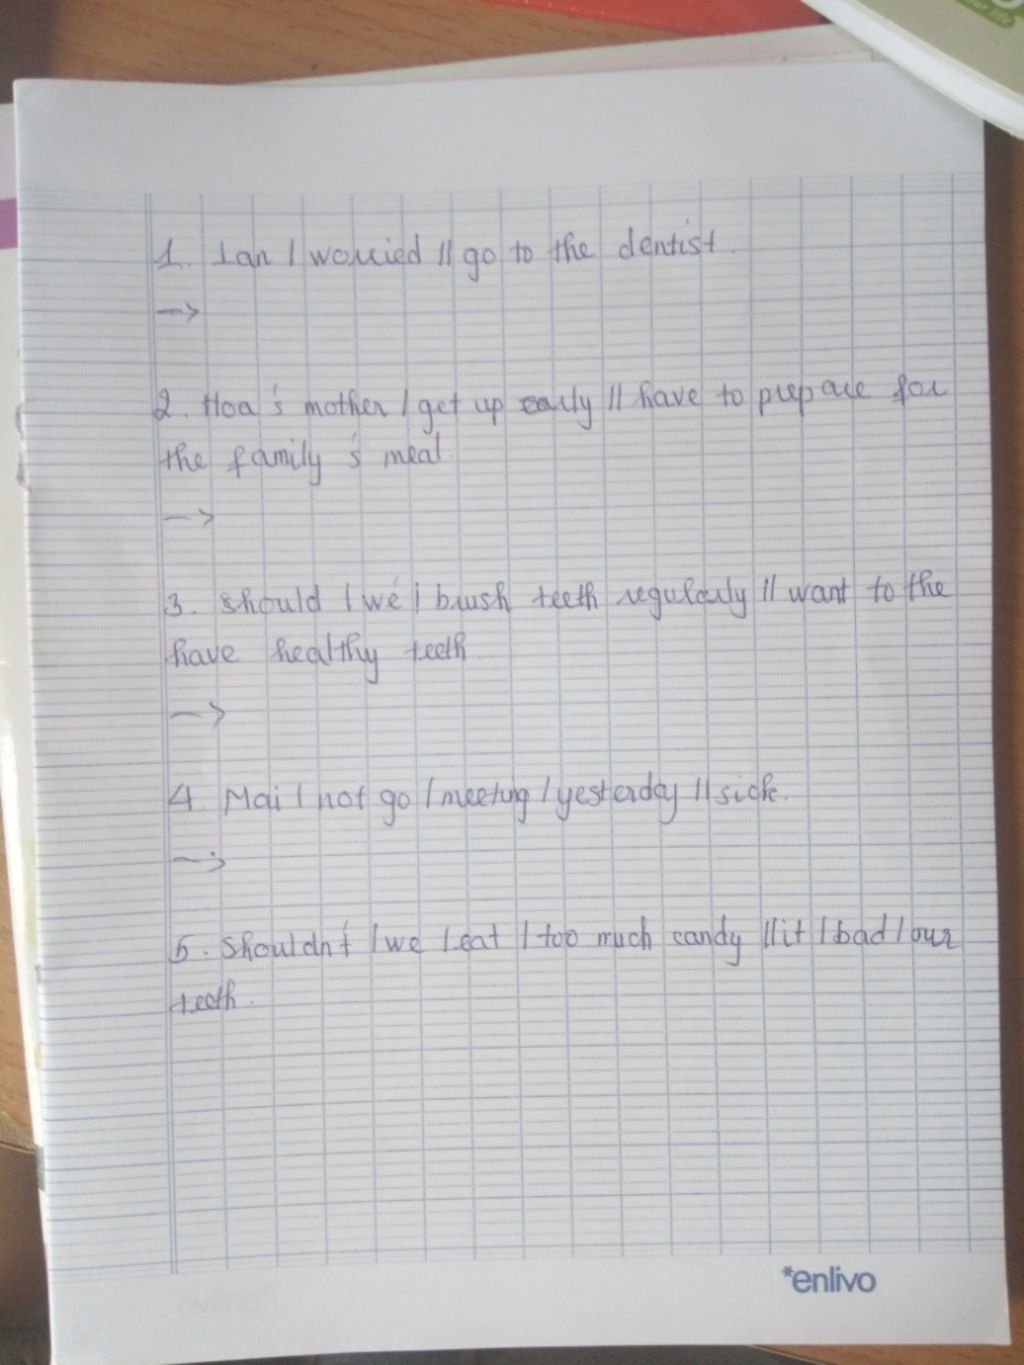 1. Ian / worried // go to the dentist.
-->
2. Hoa's mother / get up early // have to prepare for
the family's meal.
-->
3. Should / we / brush teeth regularly // want to the
have healthy teeth
-->
4. Mai / not go / meeting / yesterday // sick.
-->
5. Shouldn't / we / eat / too much candy // it / bad / our
teeth.
*enlivo